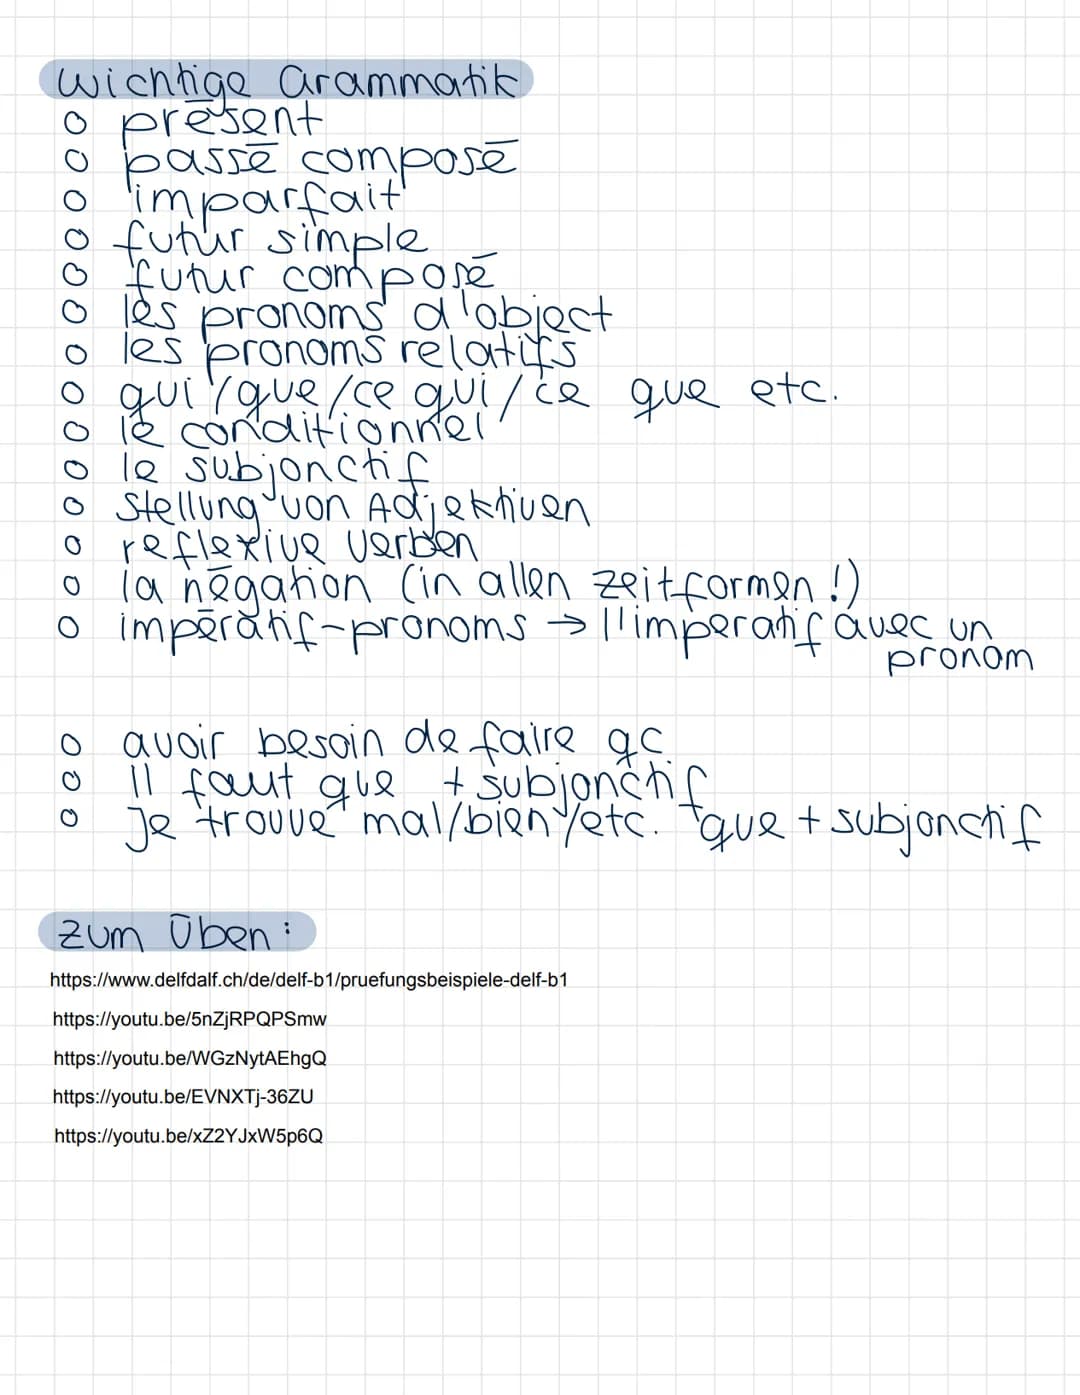 Wichtige Grammatik
o présent
o passé composé
o imparfait
o futur simple
o futur composé
o les pronoms d'object
o les pronoms relatifs
o qui/que/ce qui/ce que etc.
o le conditionnel
o le subjonctif
o Stellung von Adjektiven
o reflexive Verben
o la négation (in allen Zeitformen!)
o impératif-pronoms → l'imperatif avec un
pronom
o avoir besoin de faire qc
o Il faut que + subjonctif
o Je trouve mal/bien/etc. que + subjonctif
Zum Üben:
https://www.delfdalf.ch/de/delf-b1/pruefungsbeispiele-delf-b1
https://youtu.be/5nZjRPQPSmw
https://youtu.be/WGzNytAEhgQ
https://youtu.be/EVNXTj-36ZU
https://youtu.be/xZ2YJxW5p6Q